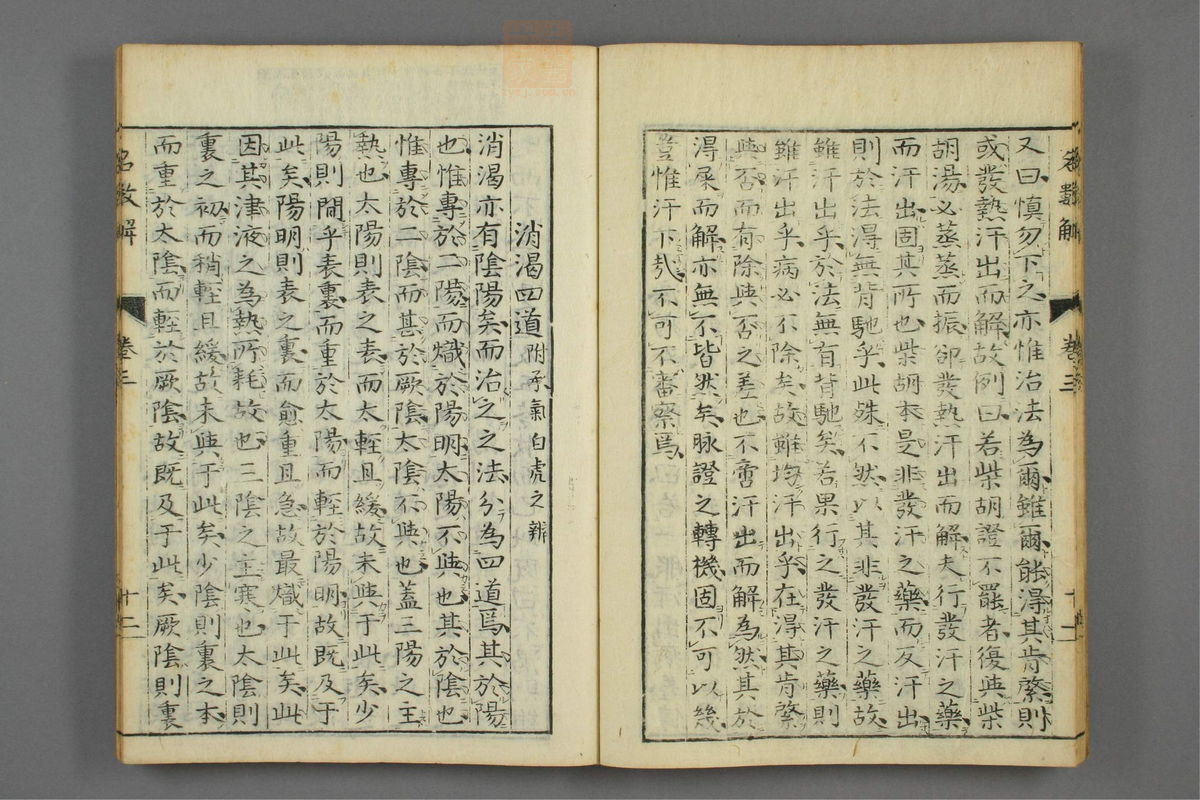 又曰慎勿下之亦惟治法為爾雖爾能得其肯綮則
或發熱汗出而解故例曰若柴胡證不罷者復與柴
胡湯必蒸蒸而振卻發熱汗出而解夫行發汗之藥
而汗出固其所也柴胡本是非發汗之藥而反汗出
則於法得無背馳乎此殊不然以其非發汗之藥故
雖汗出乎於法無有背馳矣若果行之發汗之藥則
雖汗出乎病必不除矣故雖均汗出乎在得其肯綮
與否而有除與否之差也不啻汗出而解為然其於
得屎而解亦無不皆然矣脉證之轉機固不可以幾
豈惟汗下哉不可不審察焉
名數解 卷三 十一
消渴四道附承氣白虎之辨
消渴亦有陰陽矣而治之之法分為四道焉其於陽
也惟專於二陽而熾於陽明太陽不與也其於陰也
惟專於二陰而甚於厥陰太陰不與也蓋三陽之主
熱也太陽則表之表而大輕且緩故未與于此矣少
陽則間乎表裏而重於太陽而輕於陽明故既及于
此矣陽明則表之裏而愈重且急故最熾于此矣此
因其津液之為熱所耗故也三陰之主寒也太陰則
裏之初而稍輕且緩故未與于此矣少陰則裏之本
而重於太陰而輕於厥陰故既及于此矣厥陰則裏
名數解 卷三 十二